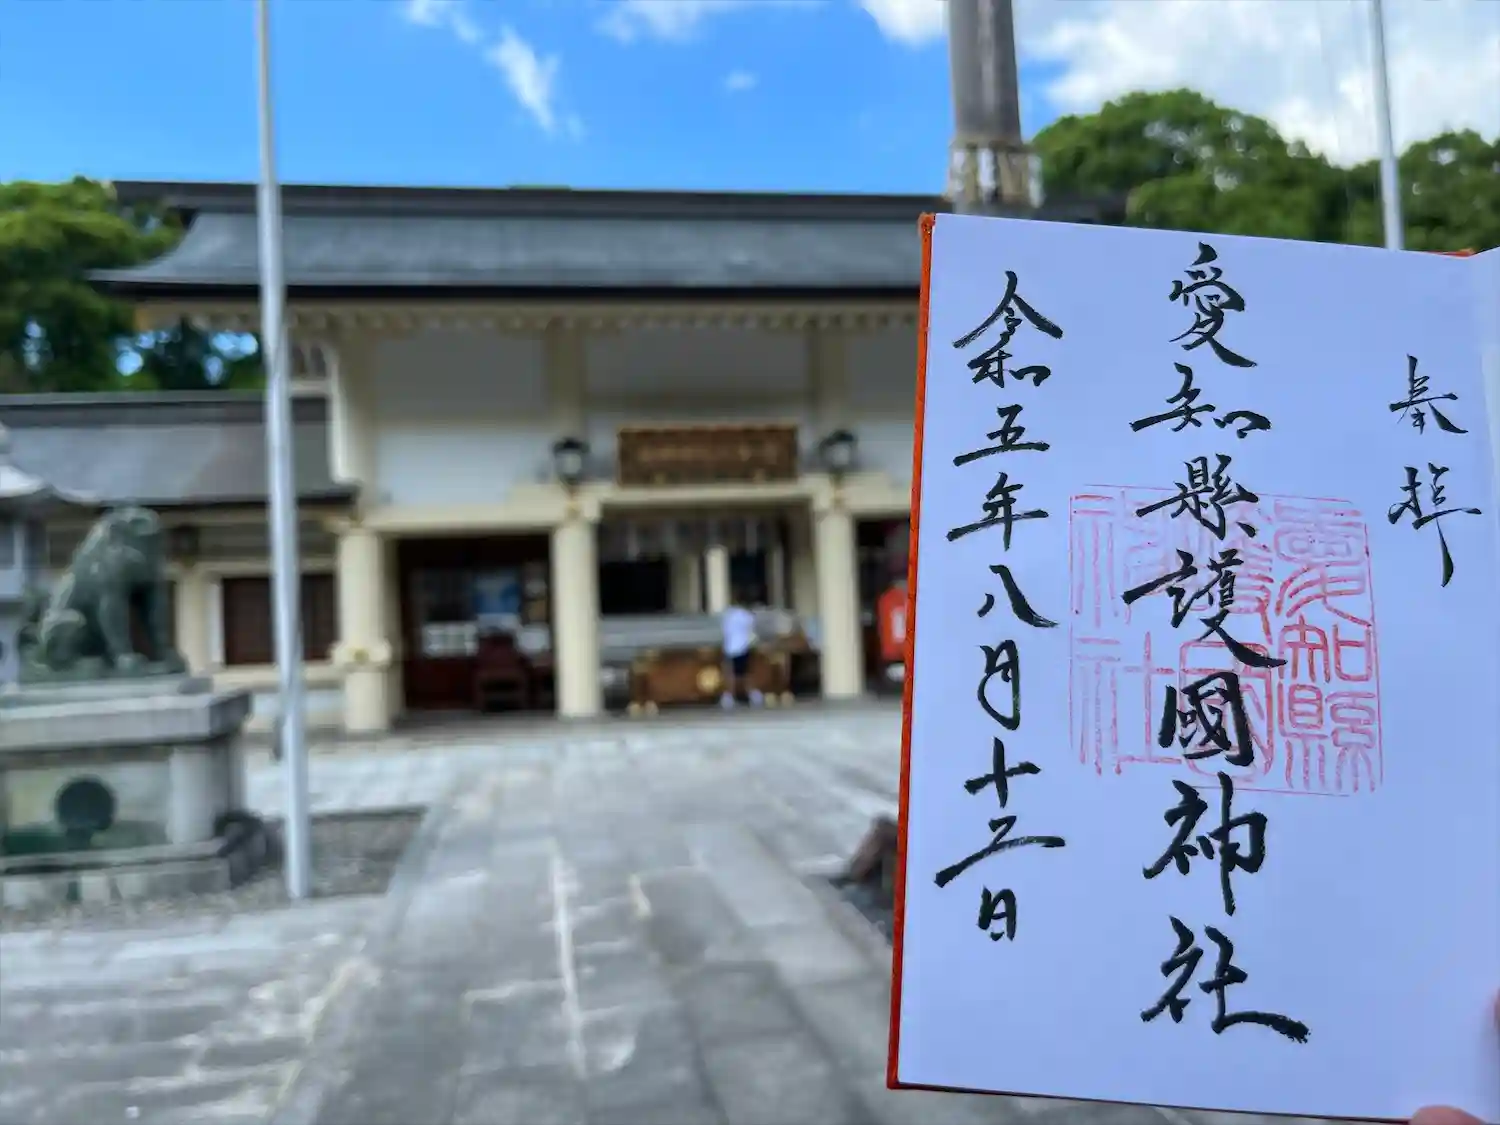 奉拝
愛知縣護國神社
愛知縣
護國
神社
令和五年八月十二日